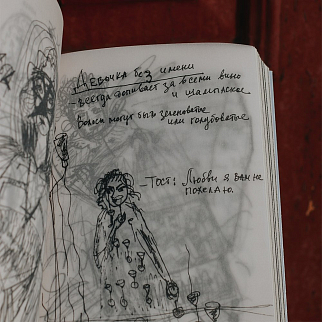 Девочка без имени
- всегда допивает за всеми вино
и шампанское
Волосы могут быть зеленоватые
или голубоватые
- Тост: Любви я вам не
пожелаю.